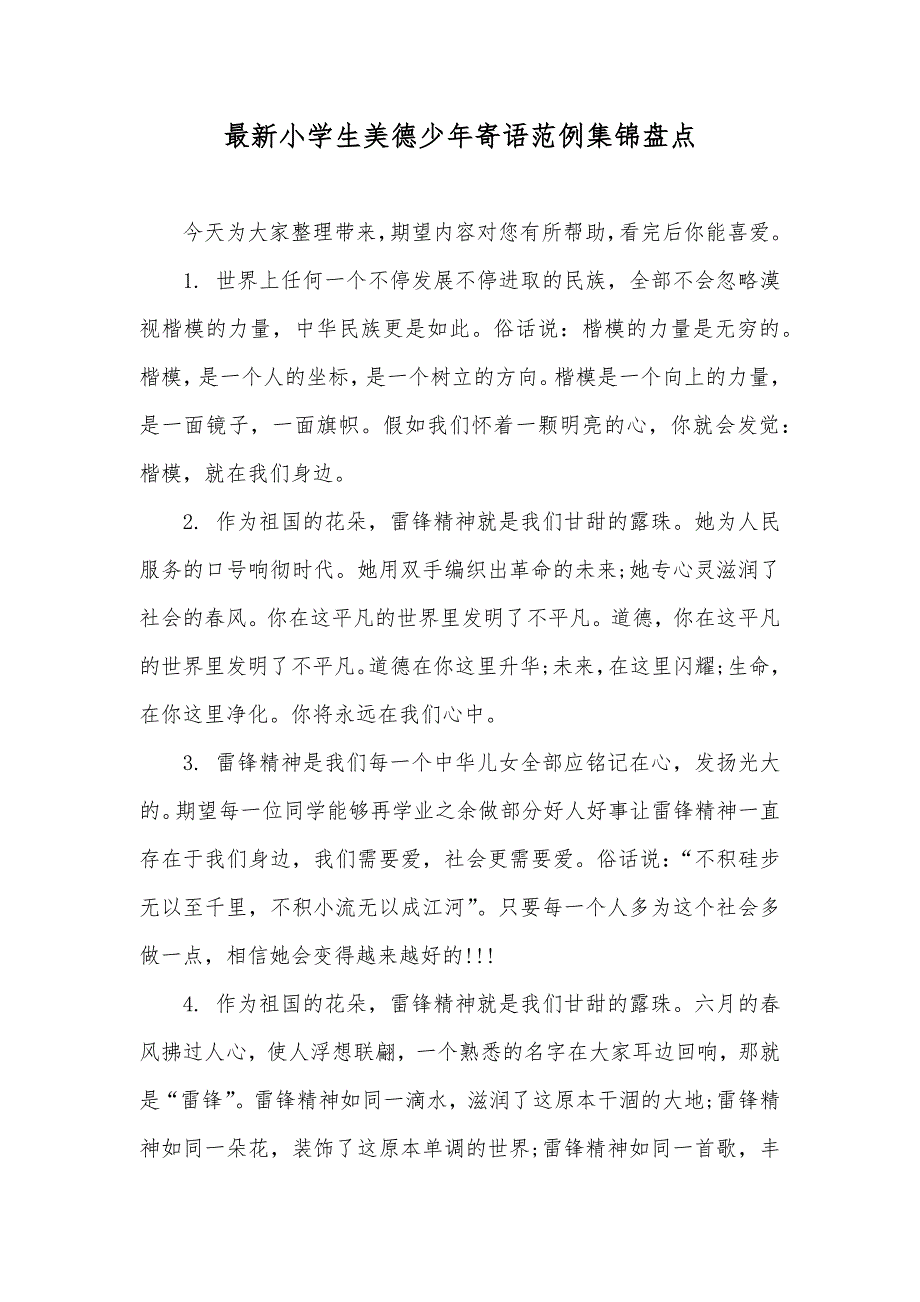 最新小学生美德少年寄语范例集锦盘点
今天为大家整理带来,期望内容对您有所帮助,看完后你能喜爱。
1. 世界上任何一个不停发展不停进取的民族，全部不会忽略漠
视楷模的力量，中华民族更是如此。俗话说：楷模的力量是无穷的。
楷模，是一个人的坐标，是一个树立的方向。楷模是一个向上的力量，
是一面镜子，一面旗帜。假如我们怀着一颗明亮的心，你就会发觉：
楷模，就在我们身边。
2. 作为祖国的花朵，雷锋精神就是我们甘甜的露珠。她为人民
服务的口号响彻时代。她用双手编织出革命的未来;她专心灵滋润了
社会的春风。你在这平凡的世界里发明了不平凡。道德，你在这平凡
的世界里发明了不平凡。道德在你这里升华;未来，在这里闪耀;生命，
在你这里净化。你将永远在我们心中。
3. 雷锋精神是我们每一个中华儿女全部应铭记在心，发扬光大
的。期望每一位同学能够再学业之余做部分好人好事让雷锋精神一直
存在于我们身边，我们需要爱，社会更需要爱。俗话说：“不积硅步
无以至千里，不积小流无以成江河”。只要每一个人多为这个社会多
做一点，相信她会变得越来越好的!!!
4. 作为祖国的花朵，雷锋精神就是我们甘甜的露珠。六月的春
风拂过人心，使人浮想联翩，一个熟悉的名字在大家耳边回响，那就
是“雷锋”。雷锋精神如同一滴水，滋润了这原本干涸的大地;雷锋精
神如同一朵花，装饰了这原本单调的世界;雷锋精神如同一首歌，丰